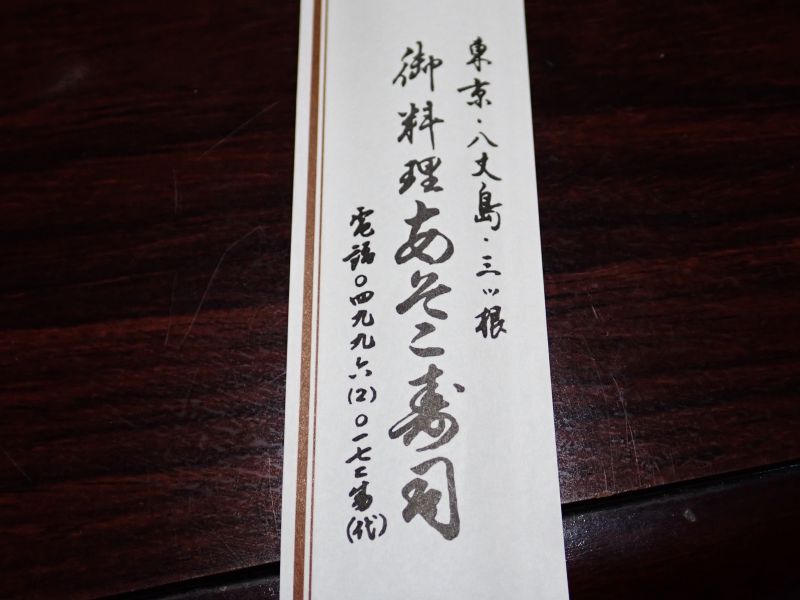 東京・八丈島・三ツ根
御料理あそこ寿司
電話〇四九九六(2)〇一七七番(代)